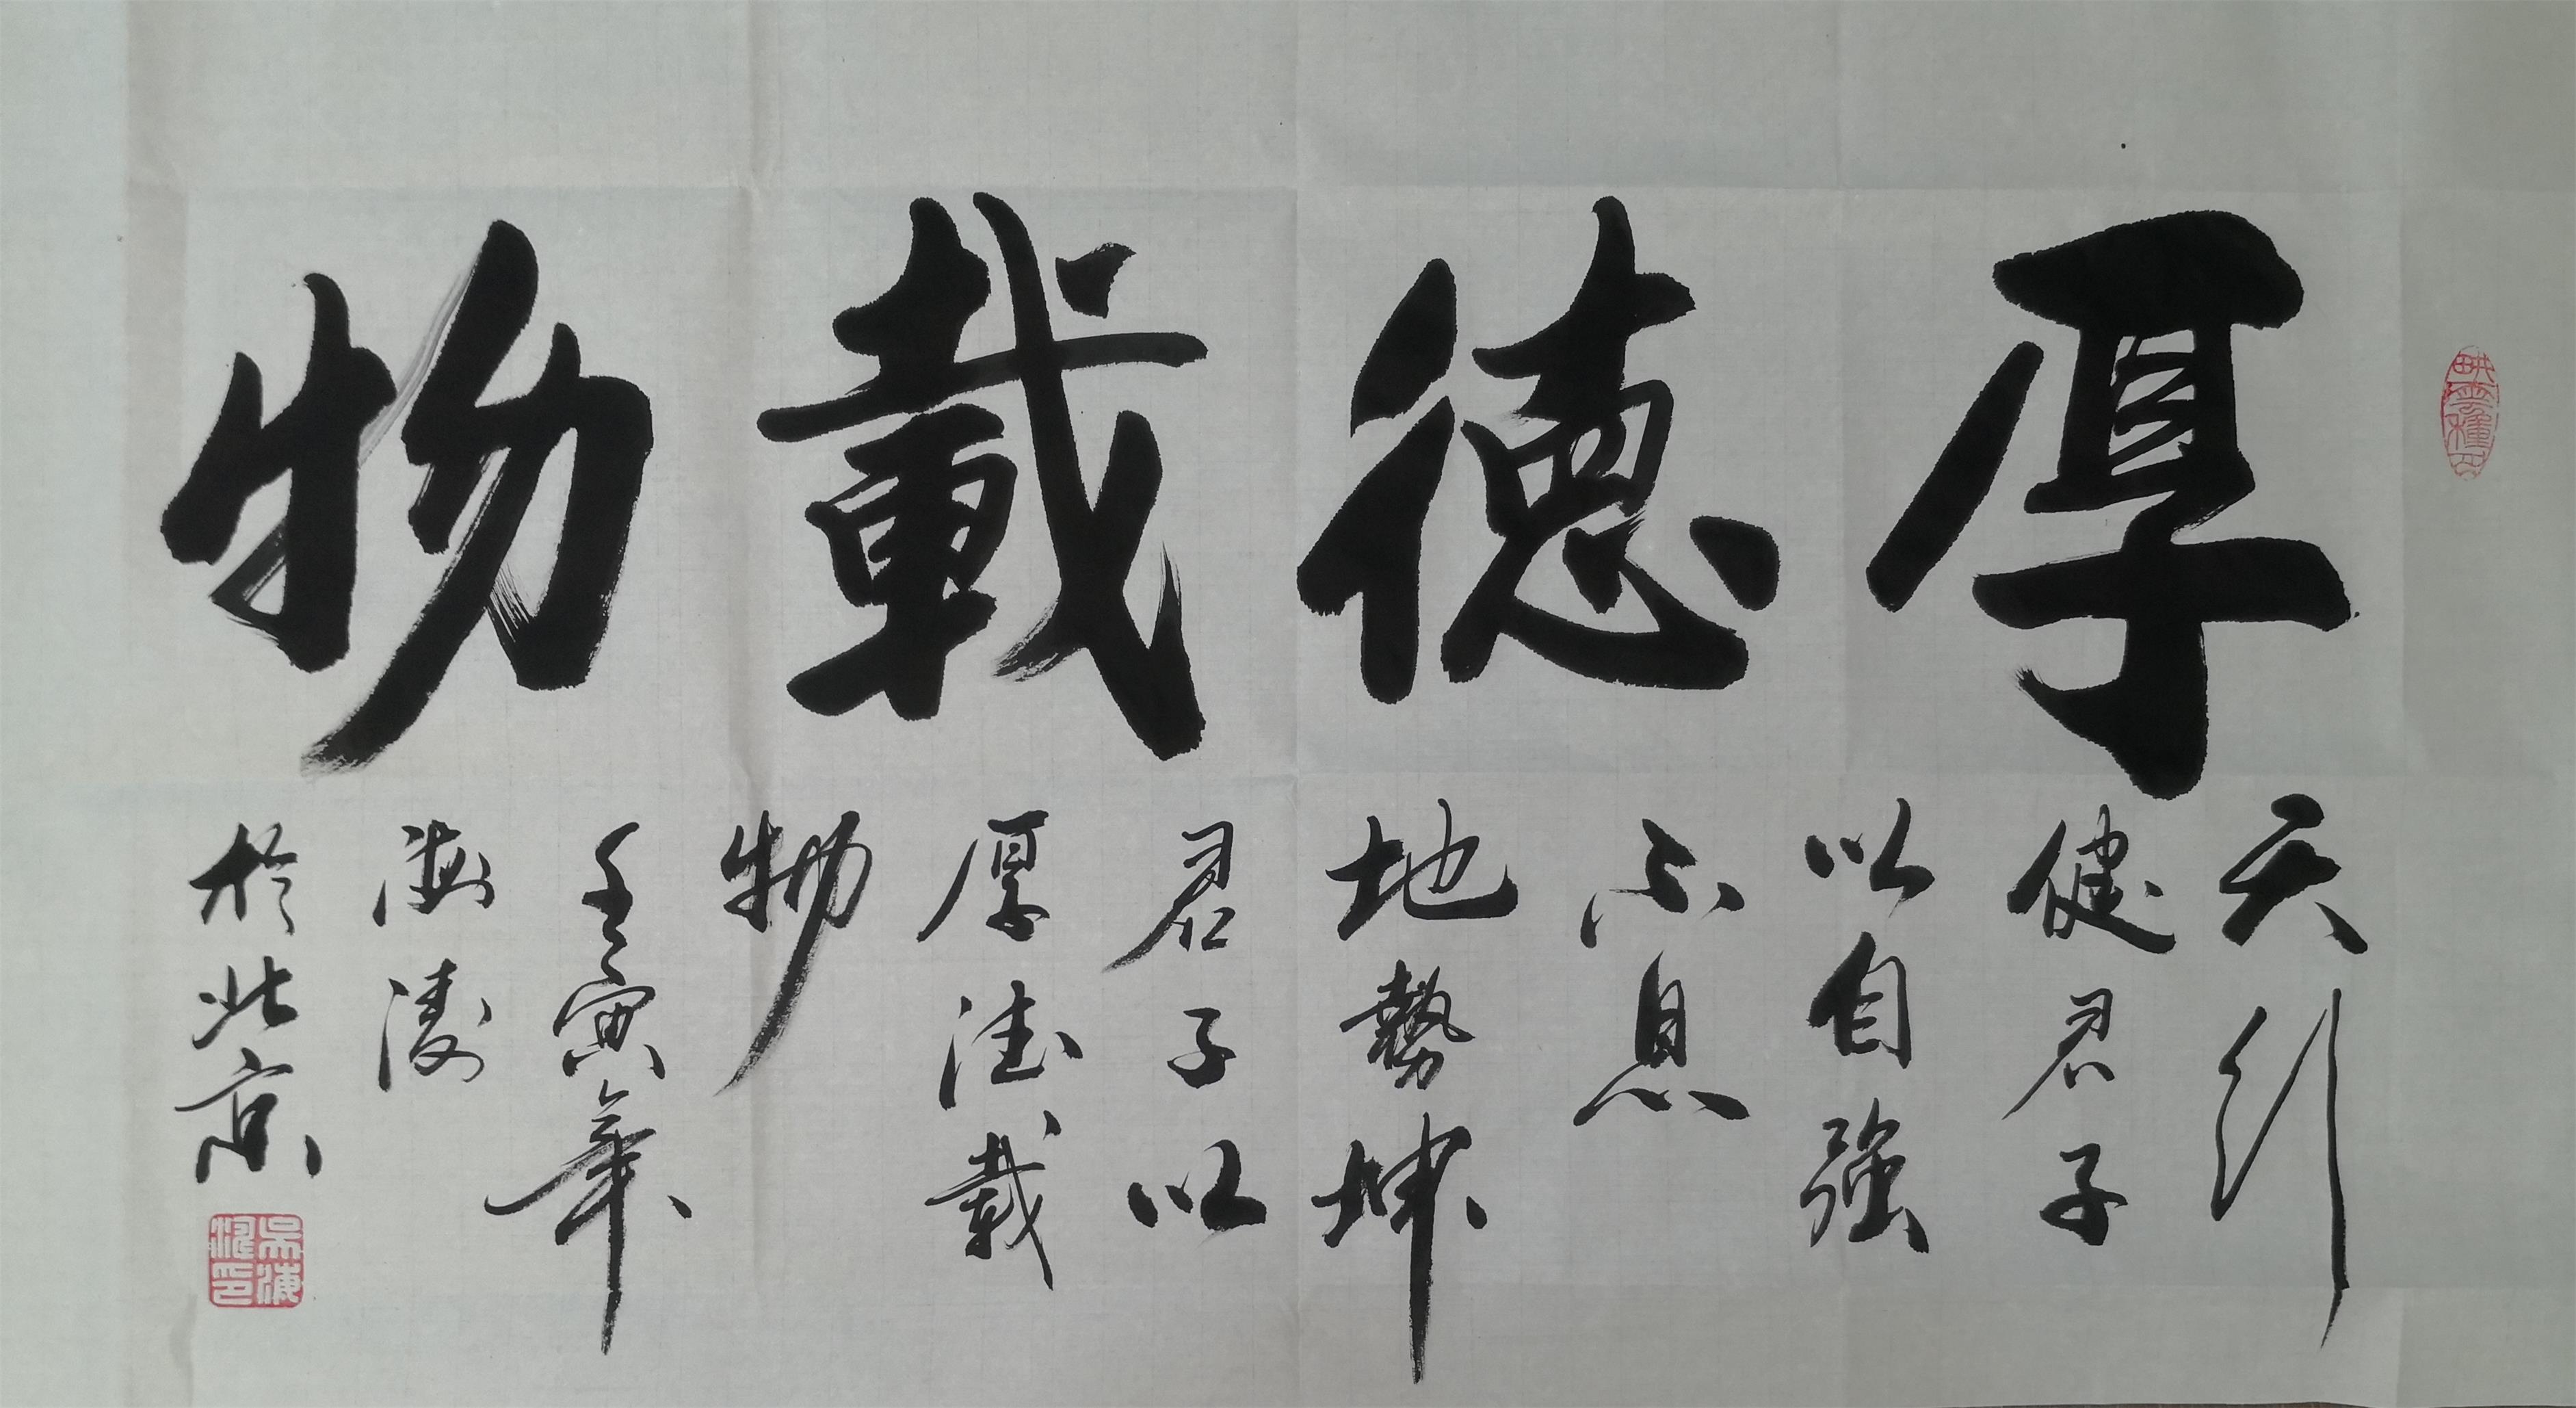 厚德載物
天行
健君子
以自強
不息
地勢坤
君子以
厚德載
物
壬寅年
海濤
於北京